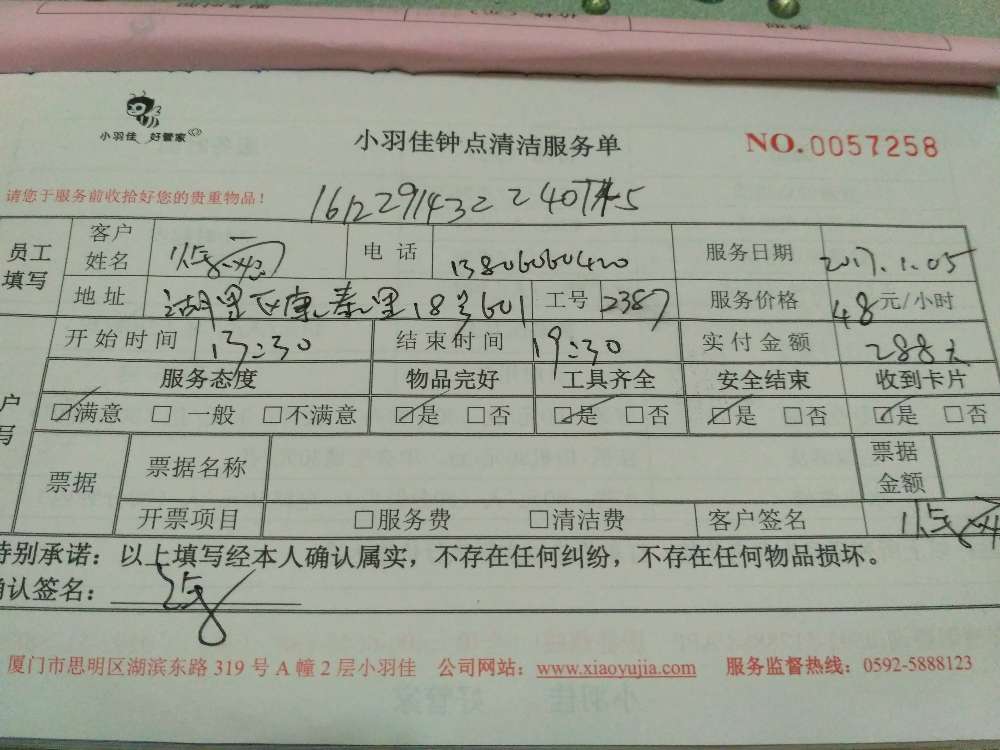 小羽佳 好管家
小羽佳钟点清洁服务单
NO.0057258
请您于服务前收拾好您的贵重物品！
员工填写 客户姓名 电话 13806060420 服务日期 2017.1.05
地址 湖里区康泰里18号601 工号 2387 服务价格 48元/小时
开始时间 13:30 结束时间 19:30 实付金额 288元
服务态度 物品完好 工具齐全 安全结束 收到卡片
☑满意 □一般 □不满意 ☑是 □否 ☑是 □否 ☑是 □否 ☑是 □否
票据 票据名称 票据金额
开票项目 □服务费 □清洁费 客户签名
特别承诺：以上填写经本人确认属实，不存在任何纠纷，不存在任何物品损坏。
确认签名：
厦门市思明区湖滨东路 319 号 A 幢 2 层小羽佳 公司网站：www.xiaoyujia.com 服务监督热线：0592-5888123